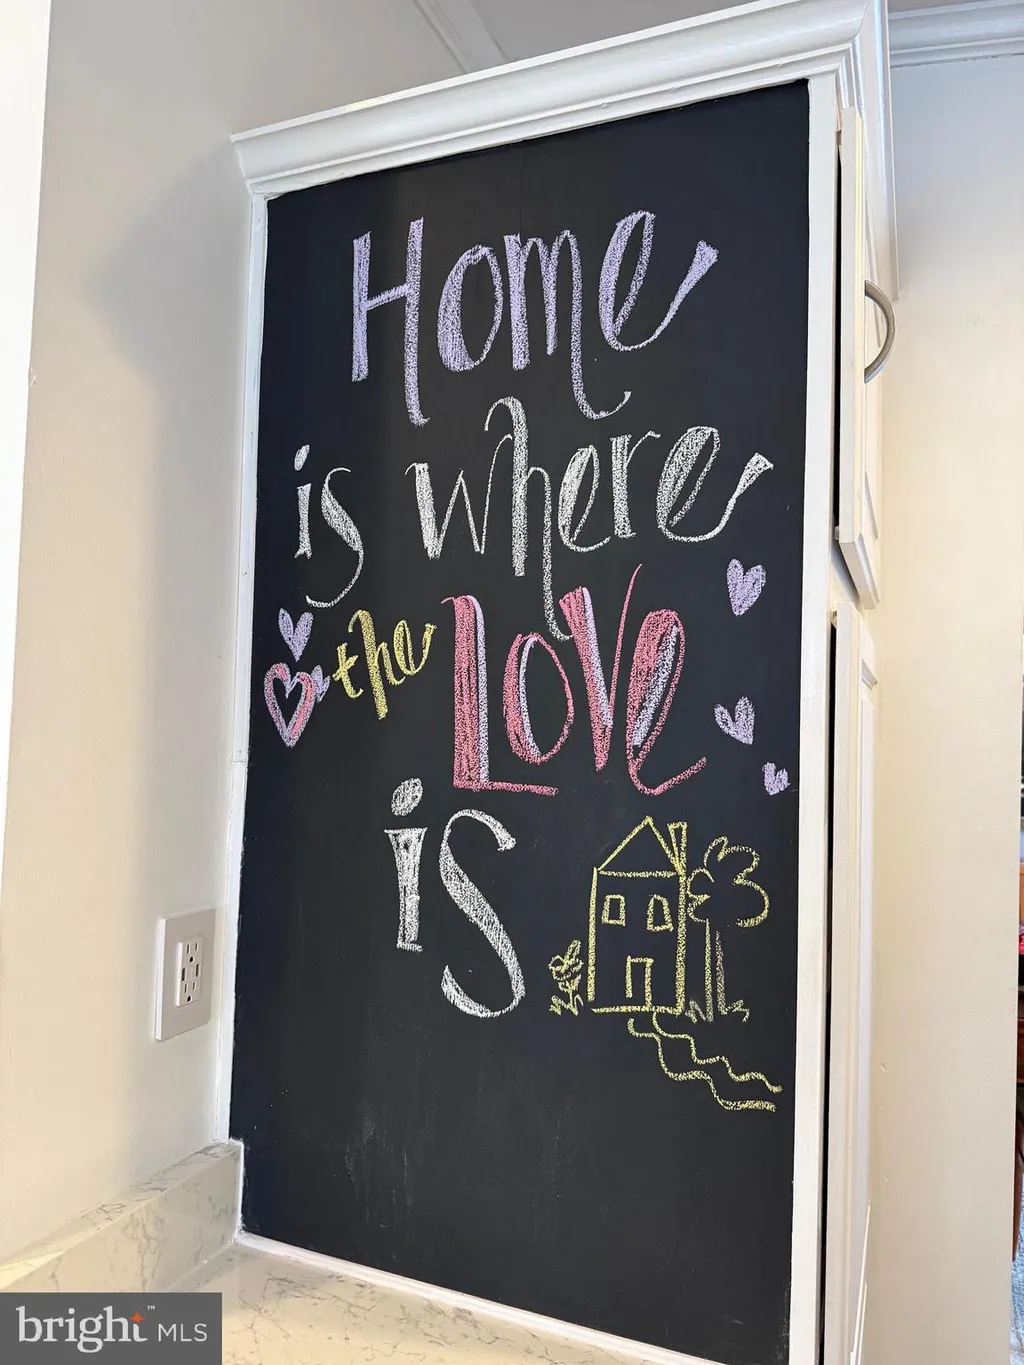 Home
is where
the LOVE
is
bright™ MLS